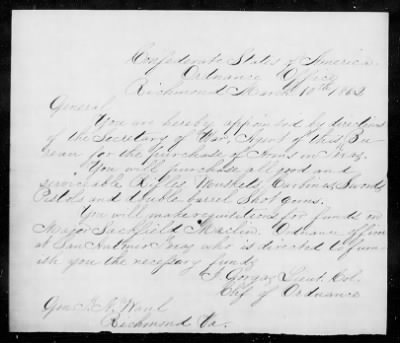 Confederate States of America.
Ordnance Office
Richmond March 10th 1862
General
You are hereby appointed by direction
of the Secretary of War, Agent of this Bu-
reau for the purchase of Arms in Texas.
You will purchase all good and
serviceable Rifles, Muskets, Carbines, Swords,
Pistols and double barrel Shot guns.
You will make requisitions for funds on
Major Sackfield Maclin, Ordnance officer
at San Antonio Texas who is directed to furn-
ish you the necessary funds
J. Gorgas Lieut. Col.
Chf. of Ordnance
Gen. T. N. Waul
Richmond Va.